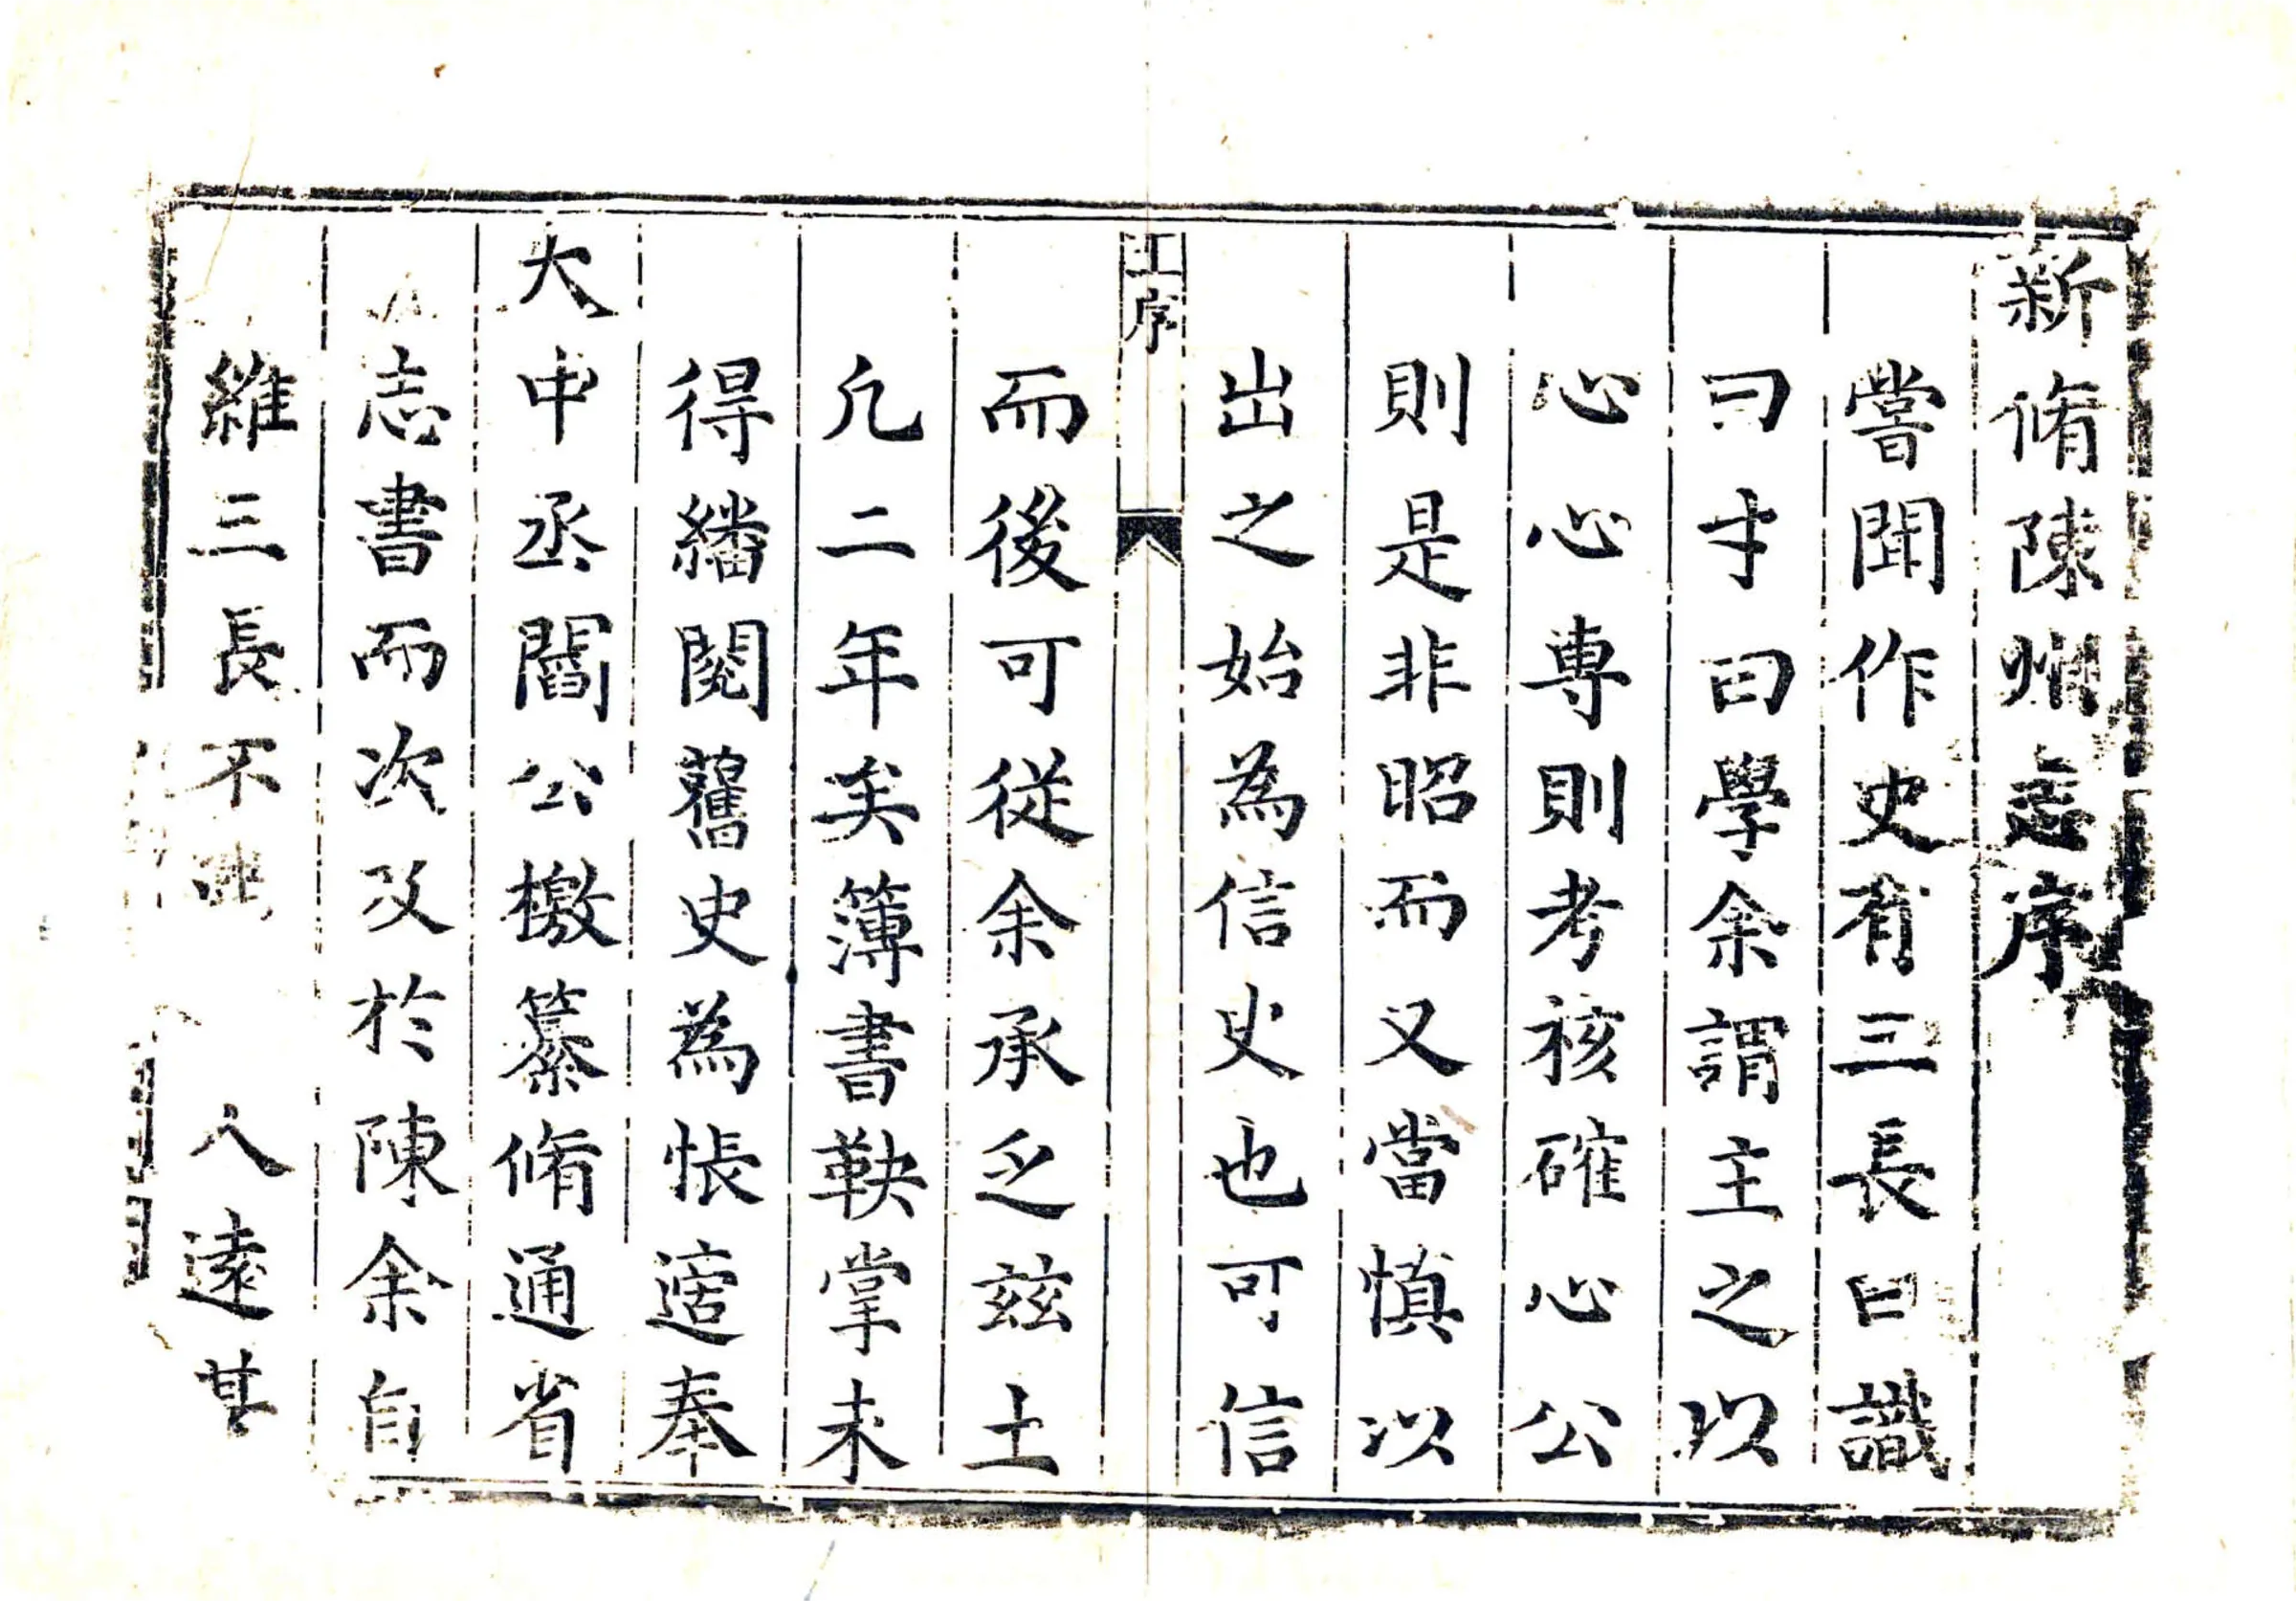 新脩陳州志序
嘗聞作史有三長曰識
曰才曰學余謂主之以
心心專則考核確心公
則是非昭而又當慎以
出之始為信史也可信
王序
而後可從余承乏兹土
凢二年矣簿書鞅掌未
得繙閱舊史為悵適奉
大中丞閻公檄纂脩通省
志書而次及於陳余自
維三長不 八遠甚